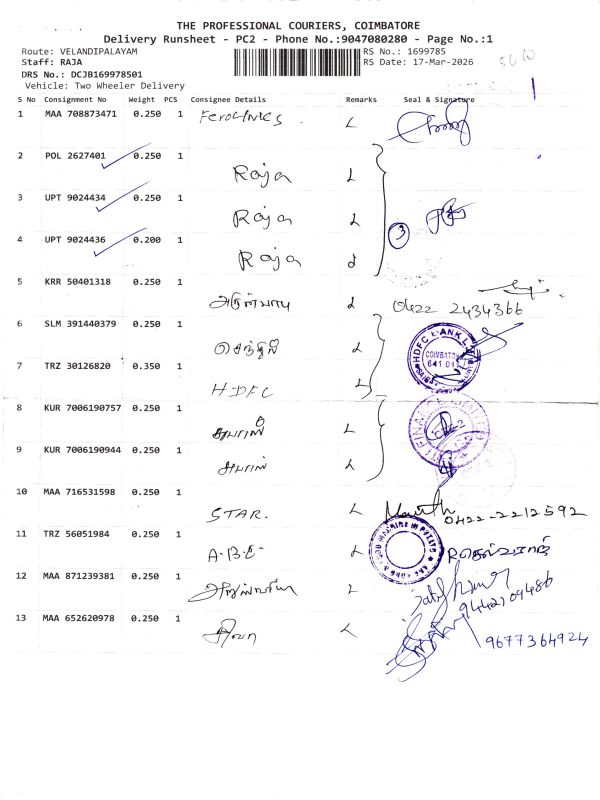 THE PROFESSIONAL COURIERS, COIMBATORE
Delivery Runsheet - PC2 - Phone No.:9047080280 - Page No.:1
Route: VELANDIPALAYAM RS No.: 1699785
Staff: RAJA RS Date: 17-Mar-2026
DRS No.: DCJB169978501
Vehicle: Two Wheeler Delivery
S No Consignment No Weight PCS Consignee Details Remarks Seal & Signature
1 MAA 708873471 0.250 1
2 POL 2627401 0.250 1 Raja L
3 UPT 9024434 0.250 1 Raja L
3
4 UPT 9024436 0.200 1 Raja
5 KRR 50401318 0.250 1 0422 2434366
6 SLM 391440379 0.250 1 செந்தில் L
HDFC BANK
COIMBATORE
641 011
7 TRZ 30126820 0.350 1 HDFC L
8 KUR 7006190757 0.250 1 L
9 KUR 7006190944 0.250 1 L
10 MAA 716531598 0.250 1 STAR. L 0422-2212592
11 TRZ 56051984 0.250 1 A.B.E- L
12 MAA 871239381 0.250 1 L
9442704486
13 MAA 652620978 0.250 1 சிவா L 9677364924